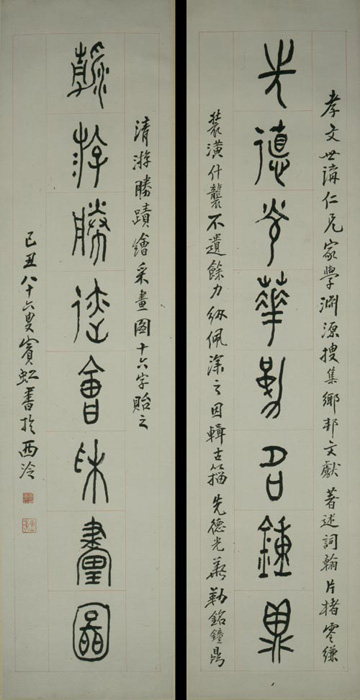 孝文世講仁兄家學淵源搜集鄉邦文獻著述詞翰片楮零縑
先德光華勒名鐘鼎
裝潢什襲不遺餘力紉佩深之因輯古籀先德光華勒銘鐘鼎
清游勝蹟繪采畫圖十六字貽之
游勝迹會采畫圖
己丑八十六叟賓虹書於西泠